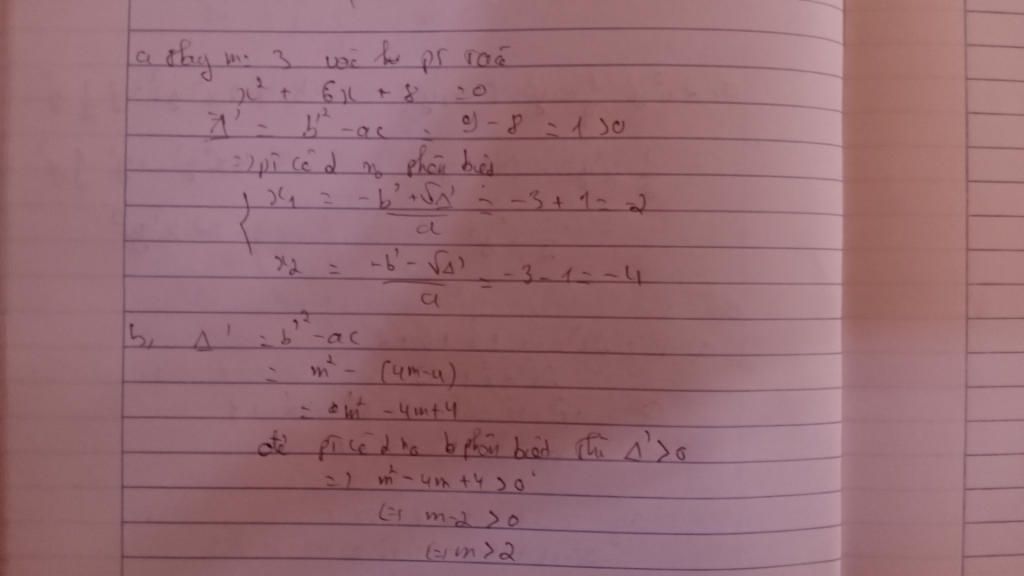 a thay m = 3 vào pt ta có
x² + 6x + 8 = 0
Δ' = b'² - ac = 9 - 8 = 1 > 0
=> pt có 2 n₀ phân biệt
x₁ = -b' + √Δ' / a = -3 + 1 = -2
x₂ = -b' - √Δ' / a = -3 - 1 = -4
b, Δ' = b'² - ac
= m² - (4m-4)
= m² - 4m+4
để pt có 2 n₀ phân biệt thì Δ' > 0
=> m² - 4m + 4 > 0
<=> m-2 > 0
<=> m > 2